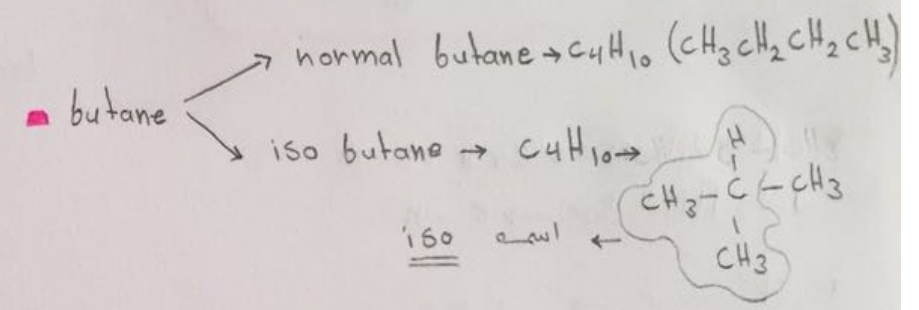 normal butane → C4H10 (CH3CH2CH2CH3)
butane
iso butane → C4H10 →
H
CH3 - C - CH3
CH3
iso اسمه ←